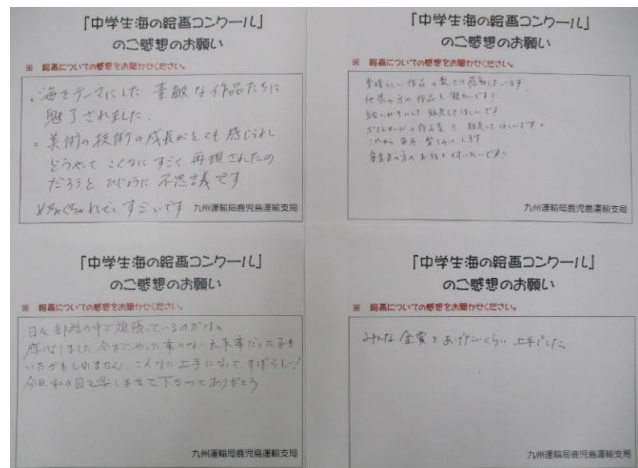 「中学生海の絵画コンクール」
のご感想のお願い
※ 絵画についての感想をお聞かせください。
・海をテーマにした 素敵な作品たちに
魅了されました.
・美術の技術の成長がとても感じられ
どうやって こんなに すごく 再現されたの
だろうと ひじょうに 不思議です
すごいです
九州運輸局鹿児島運輸支局
「中学生海の絵画コンクール」
のご感想のお願い
※ 絵画についての感想をお聞かせください。
素晴らしい作品の数々に感動しています.
他県の方の作品も観たいです!
販売してほしいです
ポストカードの作品集も 販売してほしいです。
これから毎年 楽しみにします
九州運輸局鹿児島運輸支局
「中学生海の絵画コンクール」
のご感想のお願い
※ 絵画についての感想をお聞かせください。
日々 部活の中で 頑張っているのだなと
感心しました. 今までやった事のない
いたかもしれません. こんなに上手に すばらしい!
今日私の目を楽しませて下さってありがとう
九州運輸局鹿児島運輸支局
「中学生海の絵画コンクール」
のご感想のお願い
※ 絵画についての感想をお聞かせください。
みんな 金賞を あげたいくらい 上手でした。
九州運輸局鹿児島運輸支局